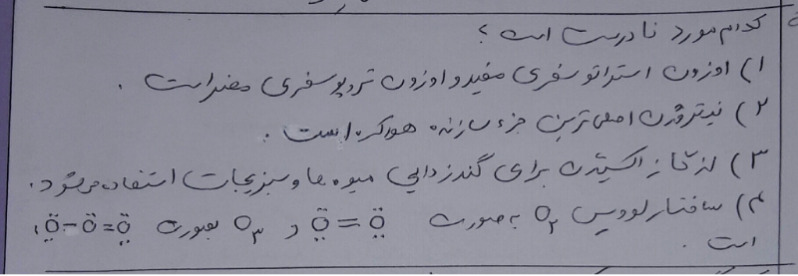 کدام مورد نادرست است؟
۱) اوزون استراتوسفری مفید و اوزون تروپوسفری مضر است.
۲) نیتروژن اصلی‌ترین جزء سازنده هواکره است.
۳) از گاز اکسیژن برای گندزدایی میوه‌ها و سبزیجات استفاده می‌شود.
۴) ساختار لوویس O₂ به صورت Ö=Ö و O₃ بصورت :Ö-Ö=Ö
است.